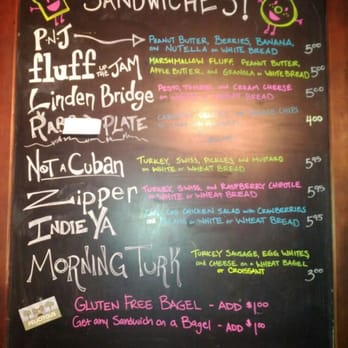 SANDWICHES!
P-N-J PEANUT BUTTER, BERRIES, BANANA,
NUTELLA ON WHITE BREAD 5.00
fluff UP THE JAM MARSHMALLOW FLUFF, PEANUT BUTTER,
APPLE BUTTER, AND GRANOLA ON WHITE BREAD 5.00
Linden Bridge PESTO, TOMATO, AND CREAM CHEESE
ON WHITE OR WHEAT BREAD 5.00
PLATE CHIPS
4.00
NOT A CUBAN TURKEY, SWISS, PICKLES, AND MUSTARD
ON WHITE OR WHEAT BREAD 5.95
Zipper TURKEY, SWISS, AND RASPBERRY CHIPOTLE
ON WHITE OR WHEAT BREAD 5.95
INDIE YA CHICKEN SALAD WITH CRANBERRIES
ON WHITE OR WHEAT BREAD 5.95
MORNING TURK TURKEY SAUSAGE, EGG WHITES
AND CHEESE ON A WHEAT BAGEL
OR CROISSANT 3.00
GLUTEN FREE BAGEL - ADD $1.00
Get any Sandwich on a Bagel - ADD $1.00